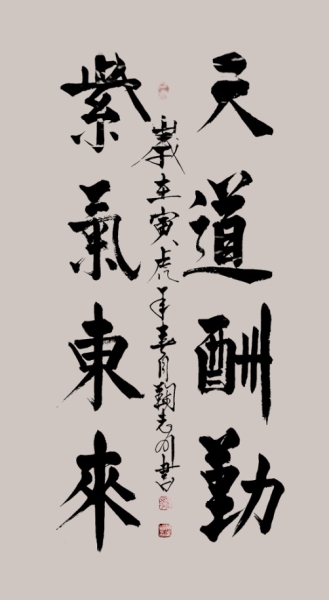 天道酬勤
歲在寅虎年春月鞠志書
紫氣東來